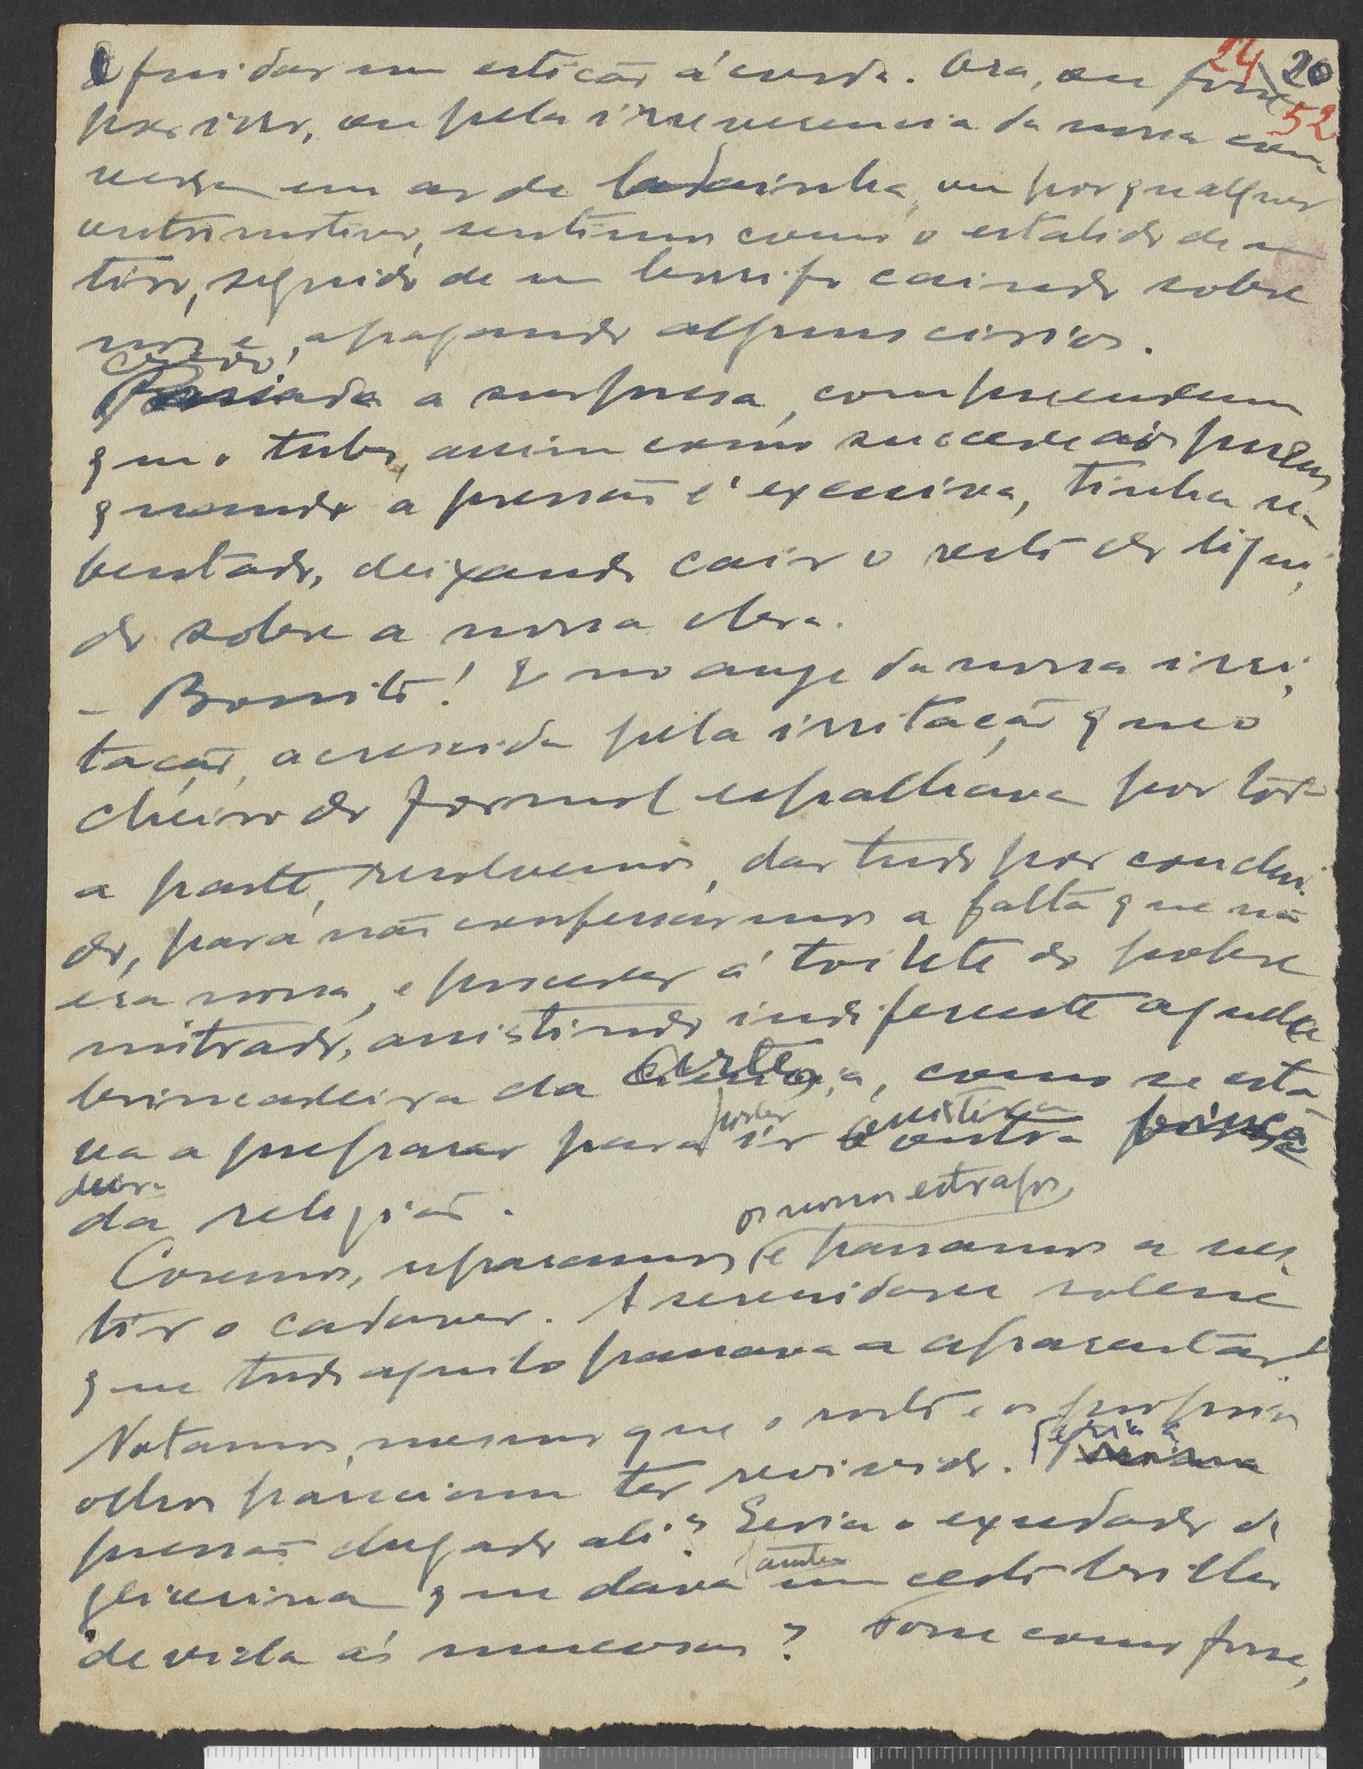 24 20
52
e fui dar um esticão á corda. Ora, ou fosse
por isso, ou pela irreverencia da nossa con-
versa em ar de ladainha, ou por qualquer
outro motivo, sentimos como o estalido de um
tiro, seguido de um borrifo caindo sobre
nós e, apagando alguns cirios.
a surpresa, compreendemos
que o tubo, assim como succede aos pneus
quando a pressão é excessiva, tinha re-
bentado, deixando cair o resto do liqui-
do sobre a nossa obra.
- Bonito! E no auge da nossa irri-
tação, acrescida pela irritação que o
cheiro do formol espalhava por toda
a parte, resolvemos, dar tudo por conclui-
do, para não confessarmos a falta que não
era nossa, e proceder á toilete do pobre
mitrado, assistindo indiferente aquela
brincadeira da arte, como se esta-
va a preparar para poder ir assistir a outra brinca
deira
da religião.
os nossos estragos,
Cosemos, reparamos e passamos a ves-
tir o cadaver. A serenidade solene
que tudo aquilo passava a aparentar!
Notamos, mesmo que o rosto e os proprios
olhos pareciam ter revivido. Seria a
pressão chegado ali? Seria o exudado de
glicerina que dava antes um certo brilho
de vida ás mucosas? Fosse como fosse,